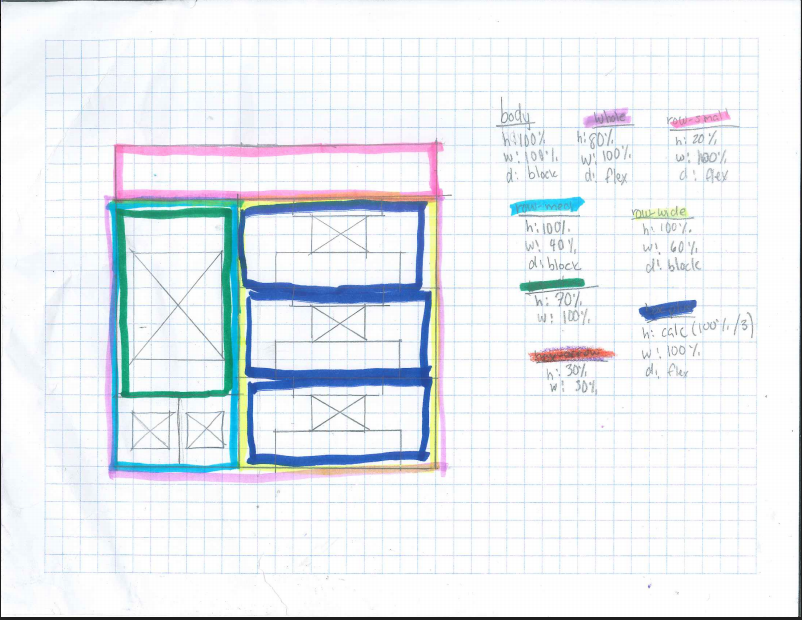 body
h: 100%
w: 100%
d: block
whole
h: 80%
w: 100%
d: flex
row-small
h: 20%
w: 100%
d: flex
h: 100%
w: 40%
d: block
row-wide
h: 100%
w: 60%
d: block
h: 70%
w: 100%
h: calc (100% /3)
w: 100%
d: flex
h: 30%
w: 30%